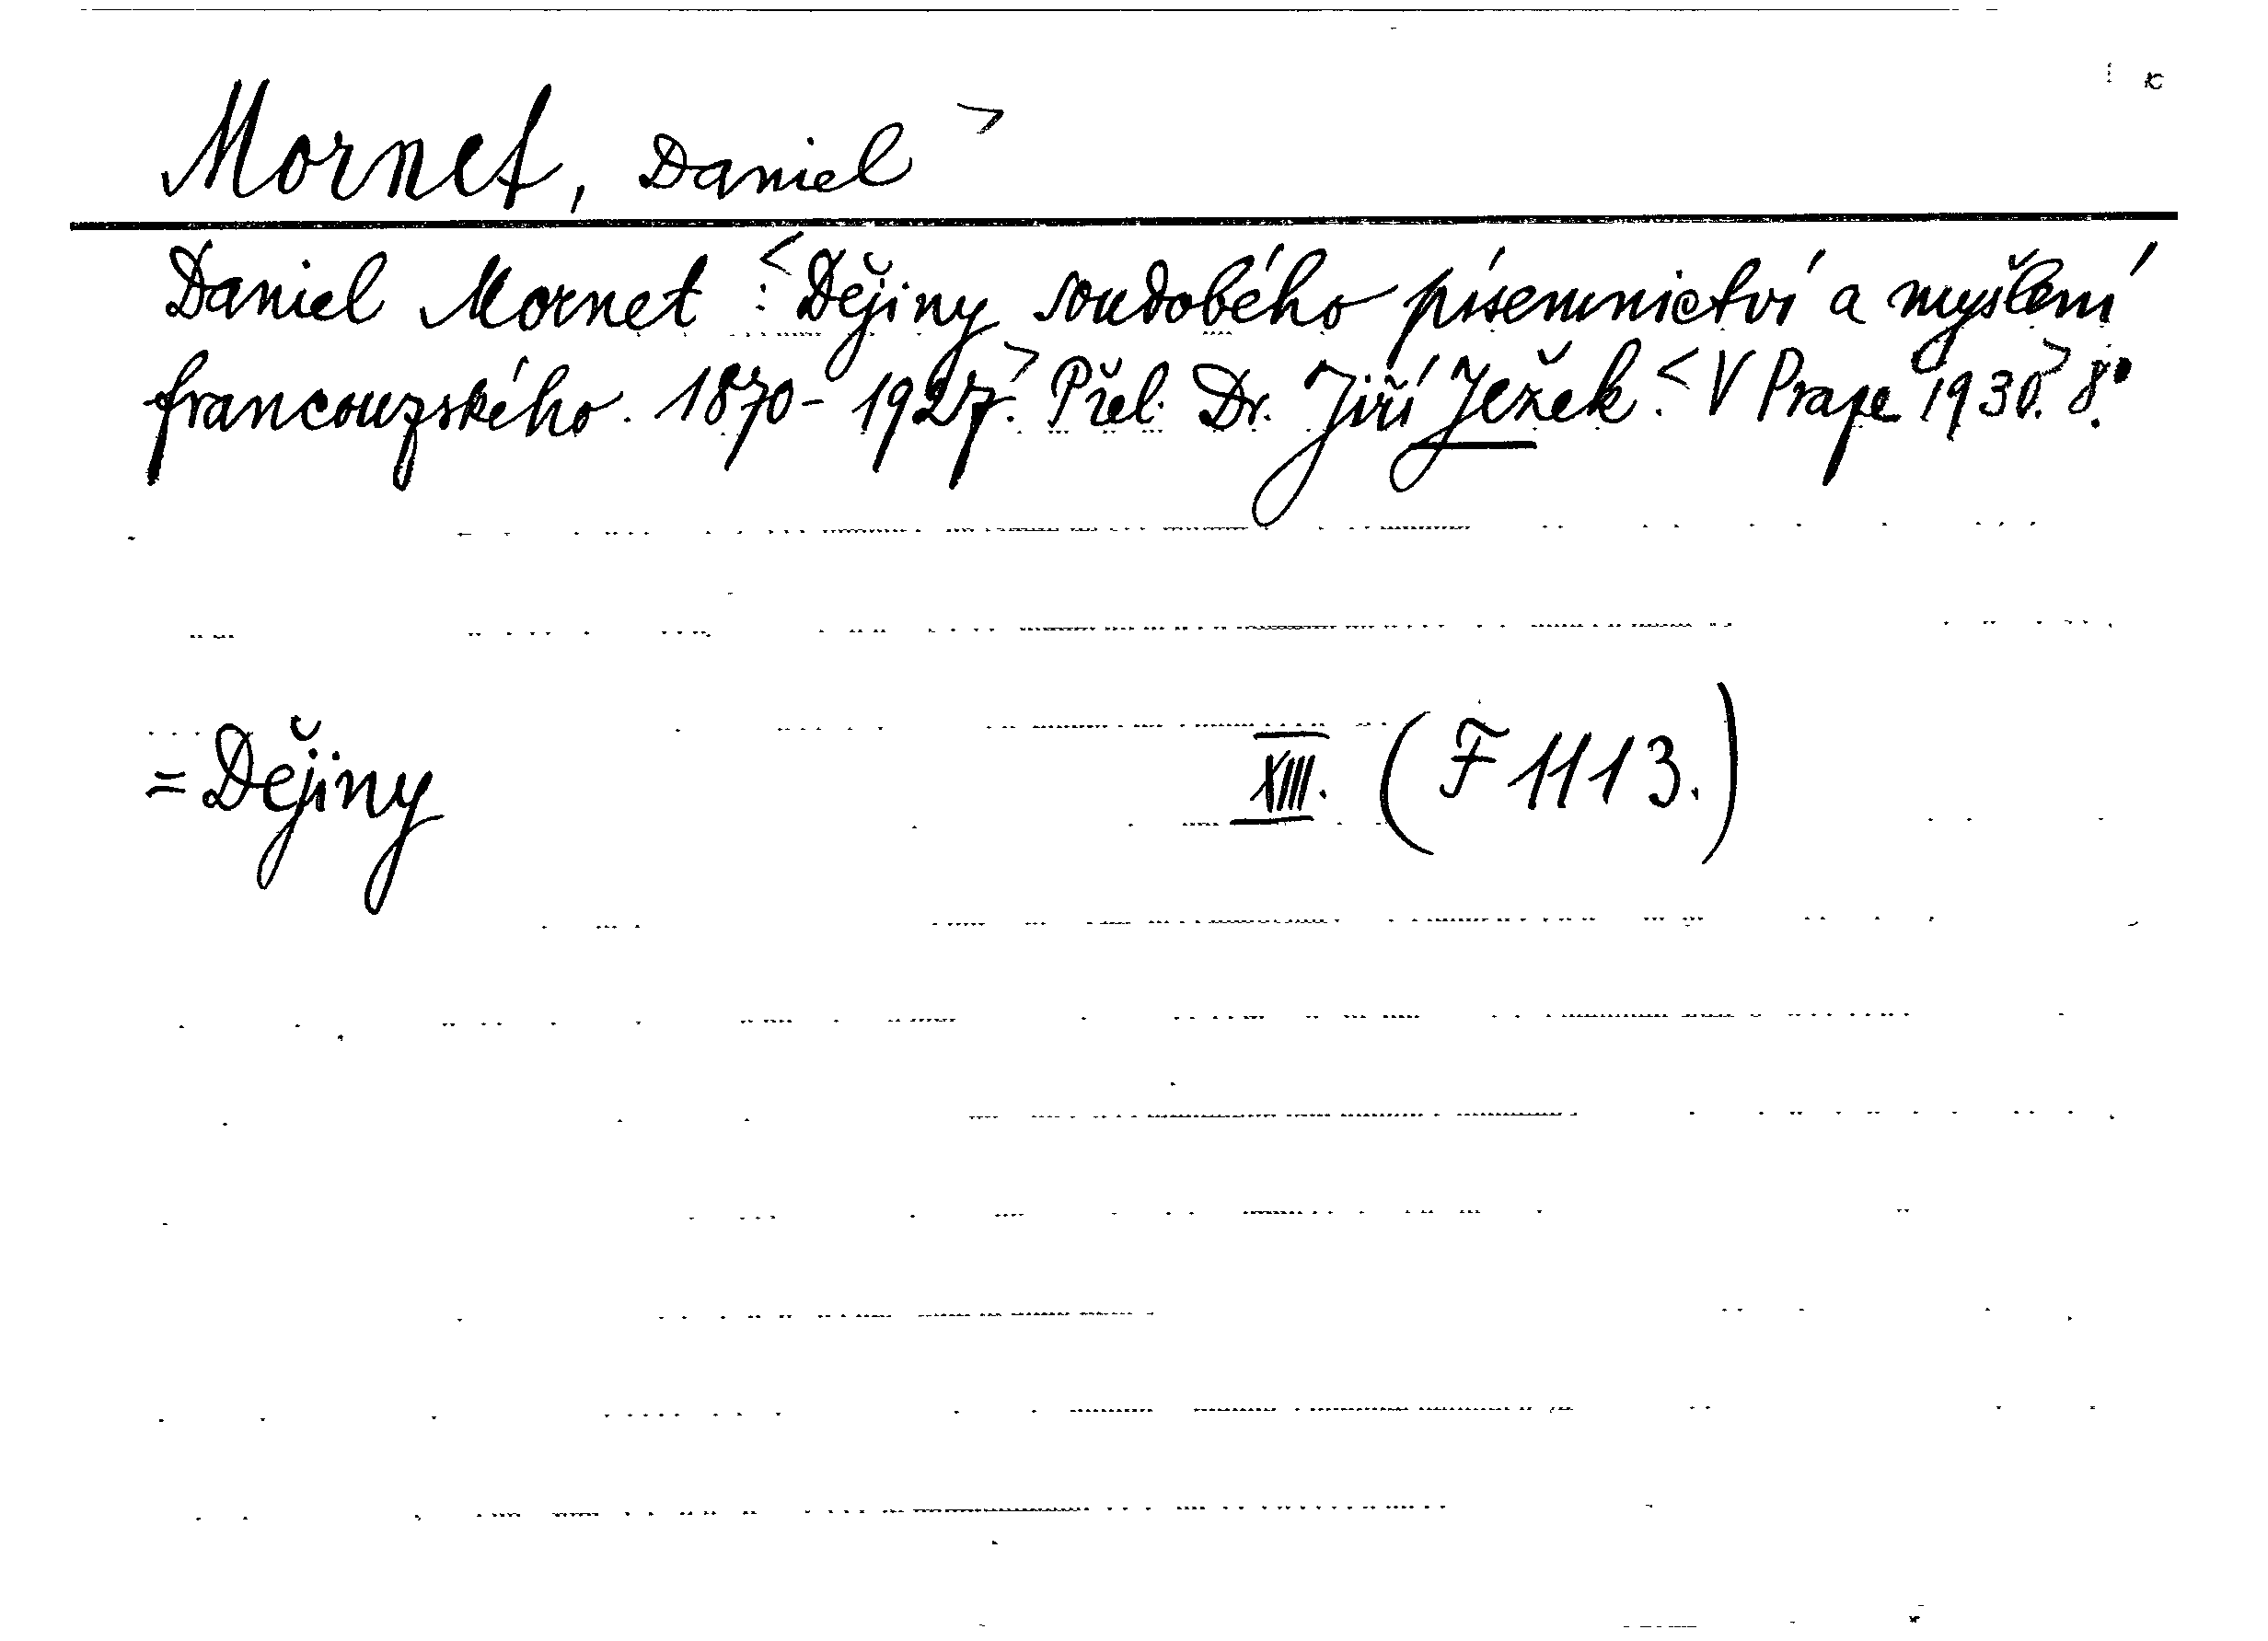 Mornet, Daniel >
Daniel Mornet :< Dějiny soudobého písemnictví a myšlení
francouzského. 1870-1927.> Přel. Dr. Jiří Ježek.< V Praze 1930.> 8°.
=Dějiny XIII. (F 1113.)